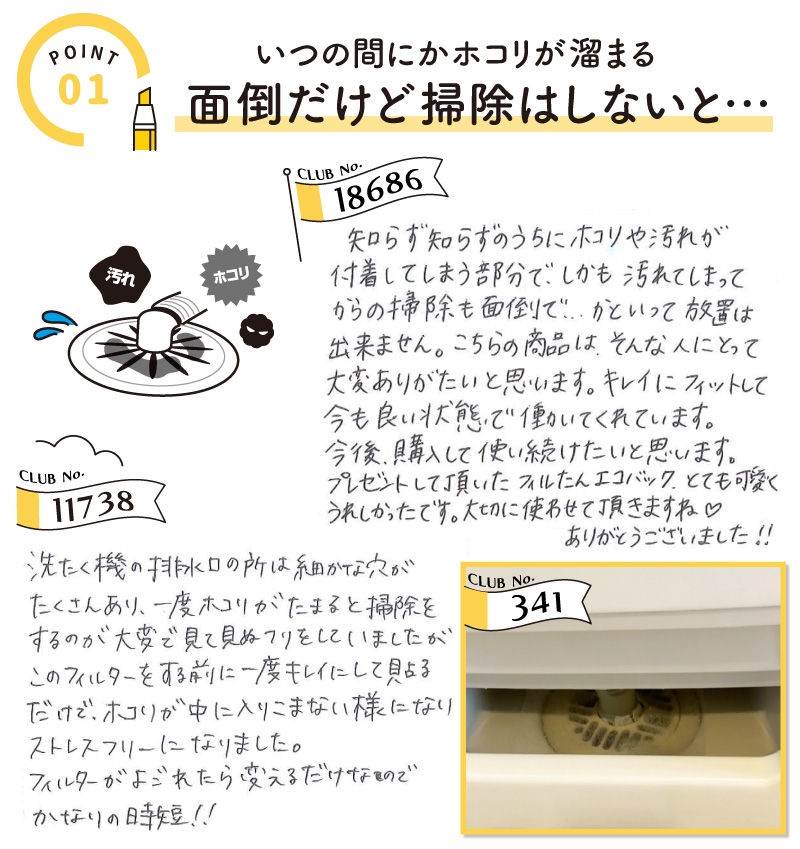 POINT
01
いつの間にかホコリが溜まる
面倒だけど掃除はしないと…
CLUB No.
18686
汚れ
ホコリ
知らず知らずのうちにホコリや汚れが
付着してしまう部分で、しかも 汚れてしまって
からの掃除も面倒で… かといって 放置は
出来ません。こちらの商品は、そんな人にとって
大変ありがたいと思います。キレイにフィットして
今も良い状態で働いてくれています。
今後、購入して使い続けたいと思います。
プレゼントして頂いた フィルたんエコバック、とても可愛く
うれしかったです。大切に使わせて頂きますね♡
ありがとうございました!!
CLUB No.
11738
洗たく機の排水口の所は細かな穴が
たくさんあり、一度ホコリがたまると掃除を
するのが大変で見て見ぬフリをしていましたが
このフィルターをする前に一度キレイにして貼る
だけで、ホコリが中に入りこまない様になり
ストレスフリーになりました。
フィルターがよごれたら変えるだけなので
かなりの時短!!
CLUB No.
341